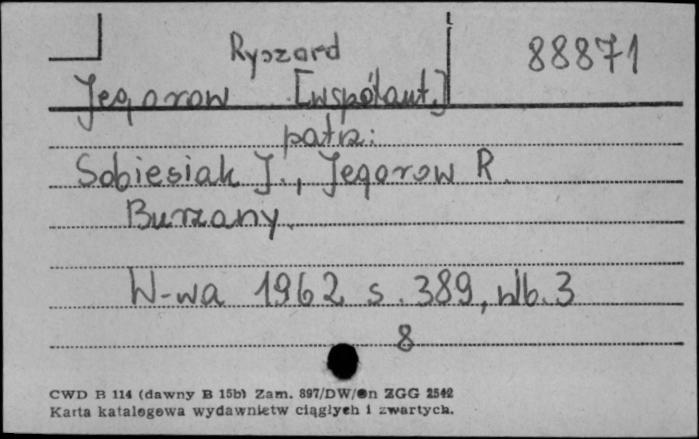 Ryszard 88871
Jegorow [współaut.]
patrz:
Sobiesiak J., Jegorow R.
Burzany.
W-wa 1962 s. 389, nlb. 3
8
CWD B 114 (dawny B 15b) Zam. 897/DW/Øn ZGG 2542
Karta katalogowa wydawnictw ciągłych i zwartych.